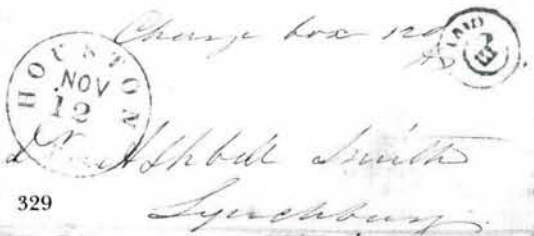 Charge box 120
PAID
3
HOUSTON
NOV
12
Dr Ashbel Smith
329
Lynchburg